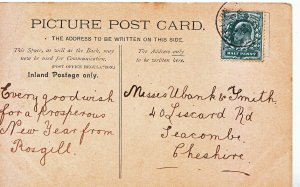 PICTURE POST CARD.
THE ADDRESS TO BE WRITTEN ON THIS SIDE.
This Space, as well as the Back, may
now be used for Communication.
(POST OFFICE REGULATION)
Inland Postage only.
The Address only
to be written here.
HALF PENNY
Every good wish
for a prosperous
New Year from
Rosgill
Messrs Ubank & Smith
40 Liscard Rd
Seacombe
Cheshire